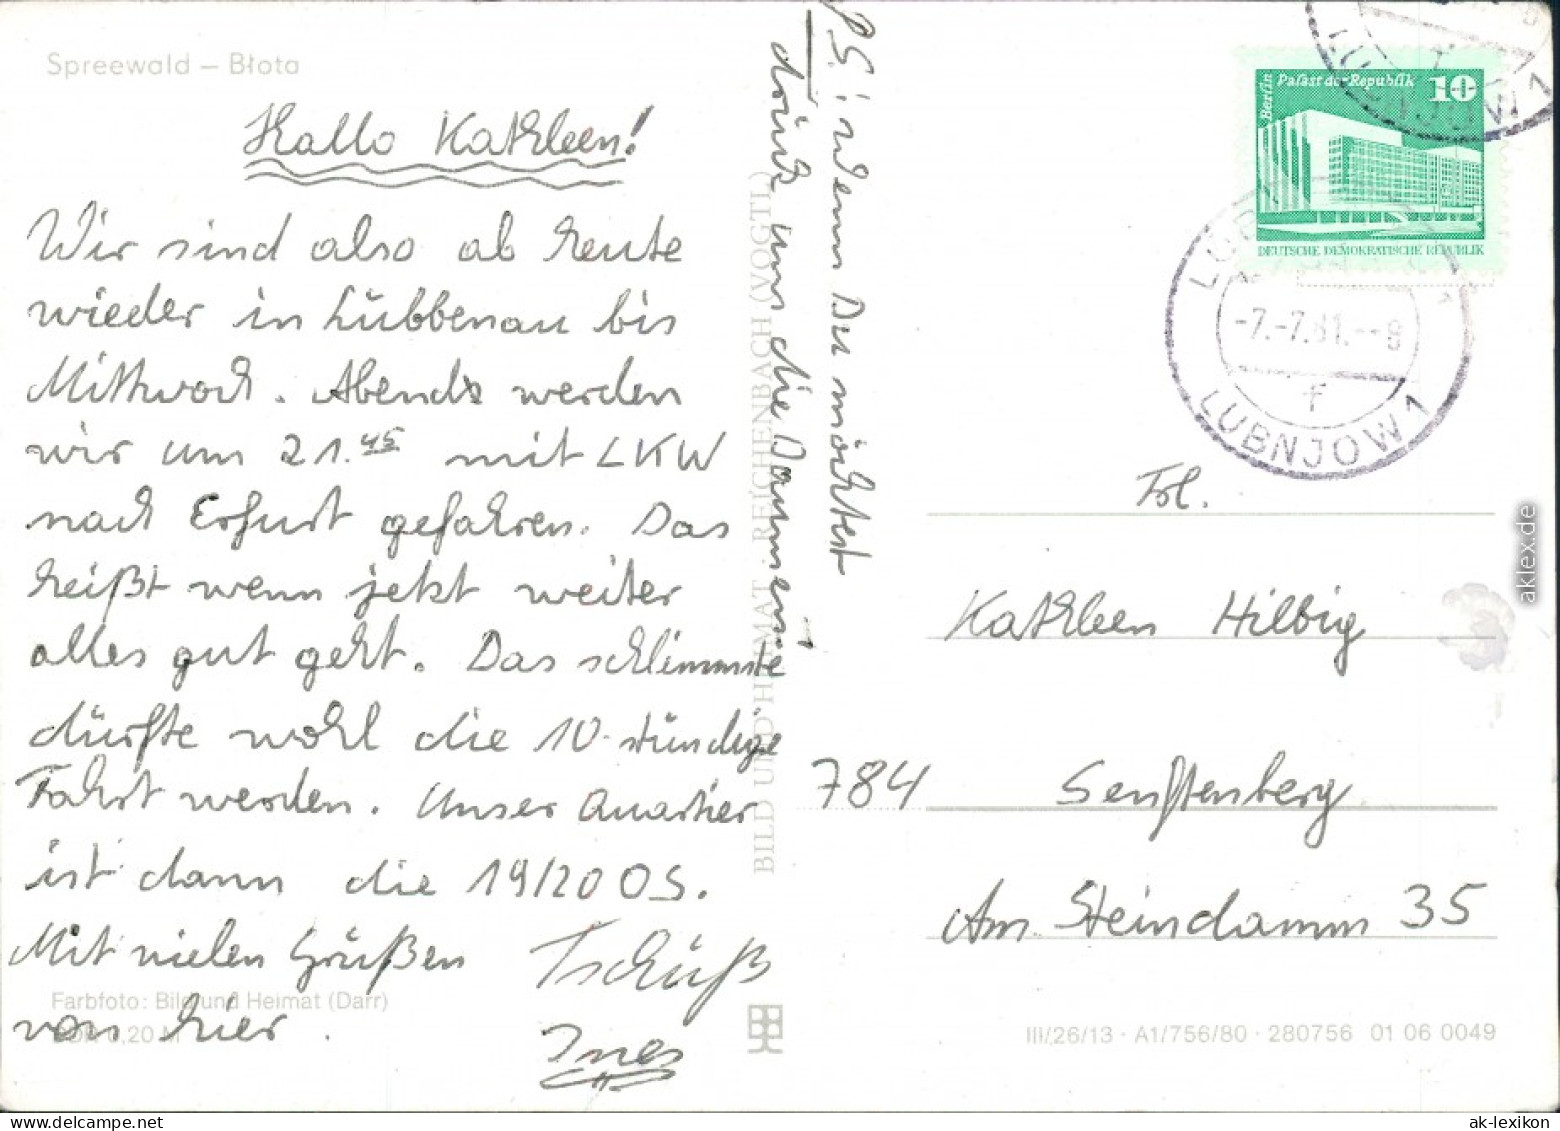 Spreewald – Błota
Hallo Kathleen!
Wir sind also ab heute
wieder in Lübbenau bis
Mittwoch. Abends werden
wir um 21.45 mit LKW
nach Erfurt gefahren. Das
heißt wenn jetzt weiter
alles gut geht. Das schlimmste
dürfte wohl die 10-stündige
Fahrt werden. Unser Quartier
ist dann die 19/20 OS.
Mit vielen Grüßen
von hier.
Tschüß
Ines
Farbfoto: Bild und Heimat (Darr)
0,20 M
BILD UND HEIMAT · REICHENBACH (VOGTL)
PS: wenn Du möchtest
drück uns die Daumen!
Berlin Palast der Republik 10
DEUTSCHE DEMOKRATISCHE REPUBLIK
LUBNJOW 1
-7.-7.81.--8
f
LUBNJOW 1
Frl.
Kathleen Hilbig
784 Senftenberg
Am Steindamm 35
III/26/13 · A1/756/80 · 280756 01 06 0049
aklex.de
(c) Copyright
ak-lexikon